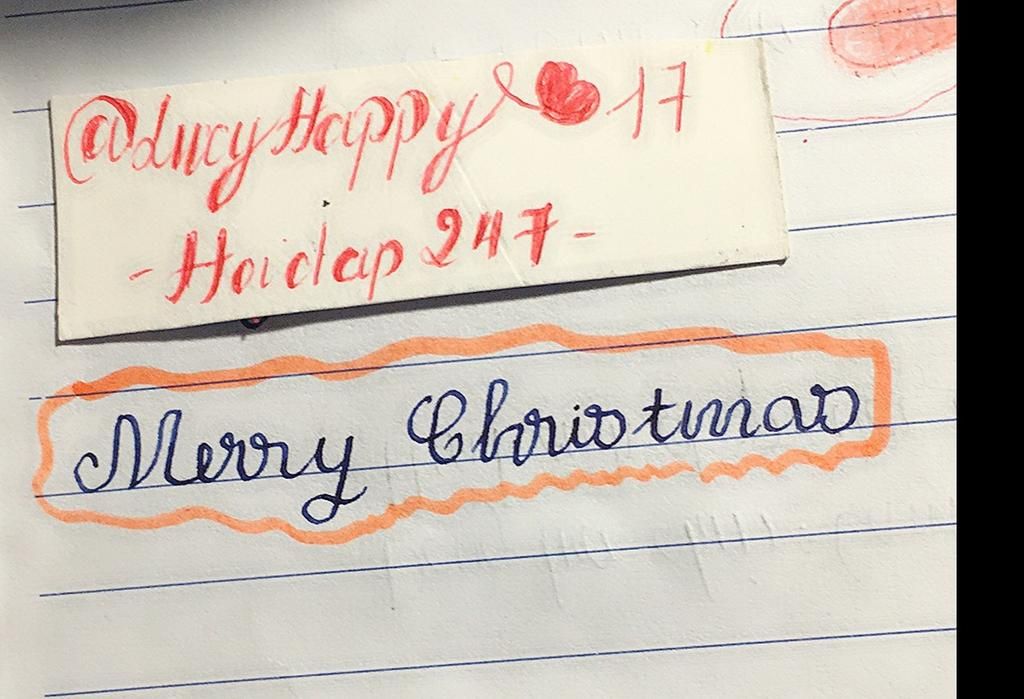 @LucyHappy ❤ 17
- Hoidap 247 -
Merry Christmas